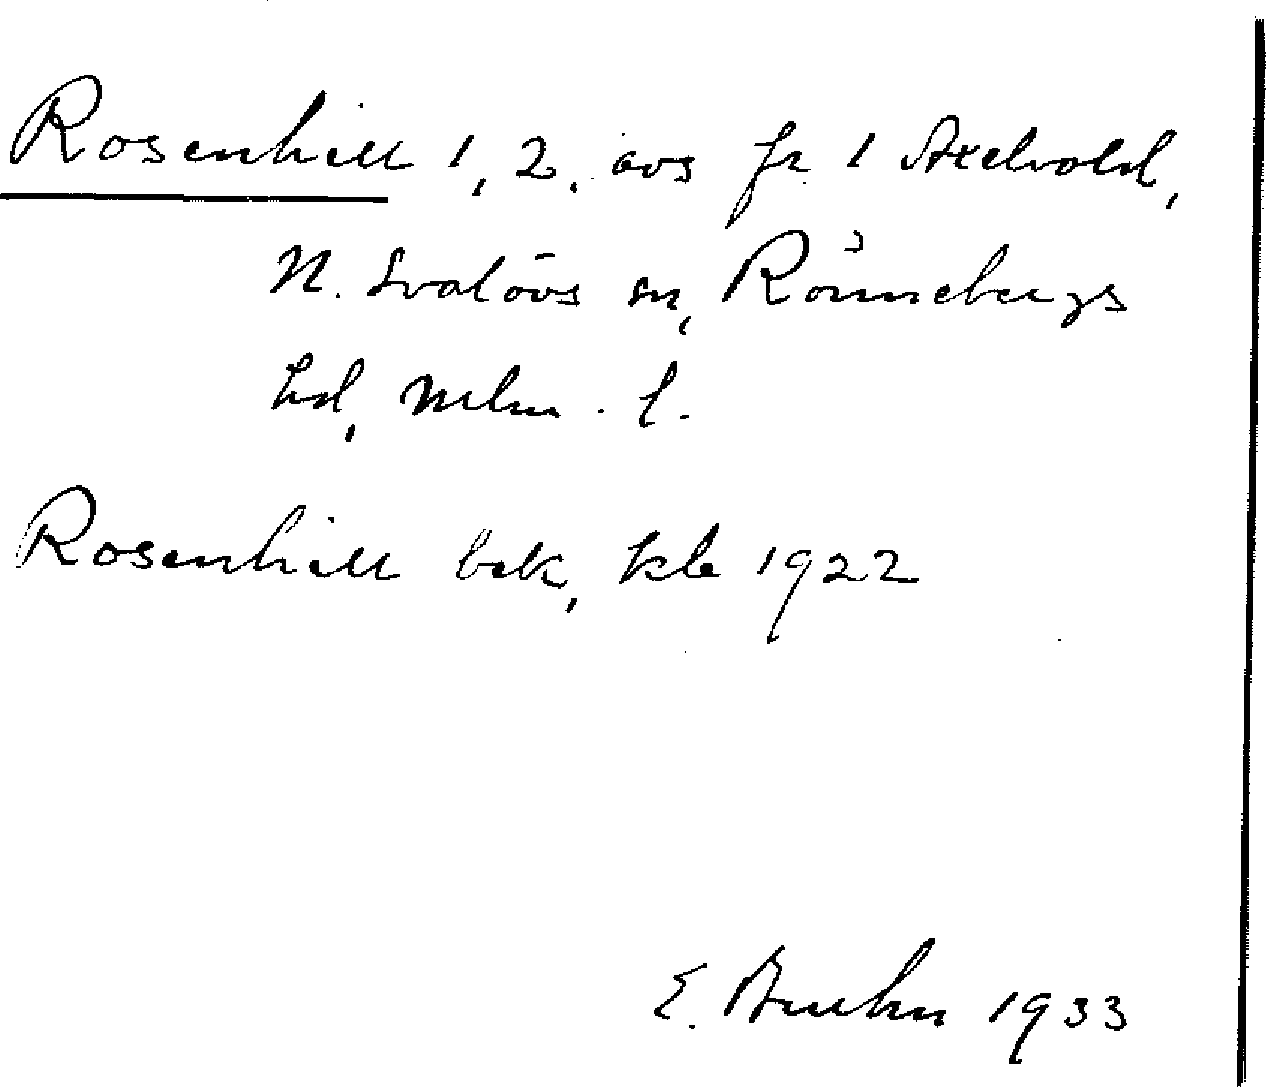 Rosenhill 1, 2. avs fr. 1 Axelvold,
N. Svalövs sn, Rönnebergs
hd, Mlm. l.
Rosenhill bek, kle 1922
E. Bruhn 1933